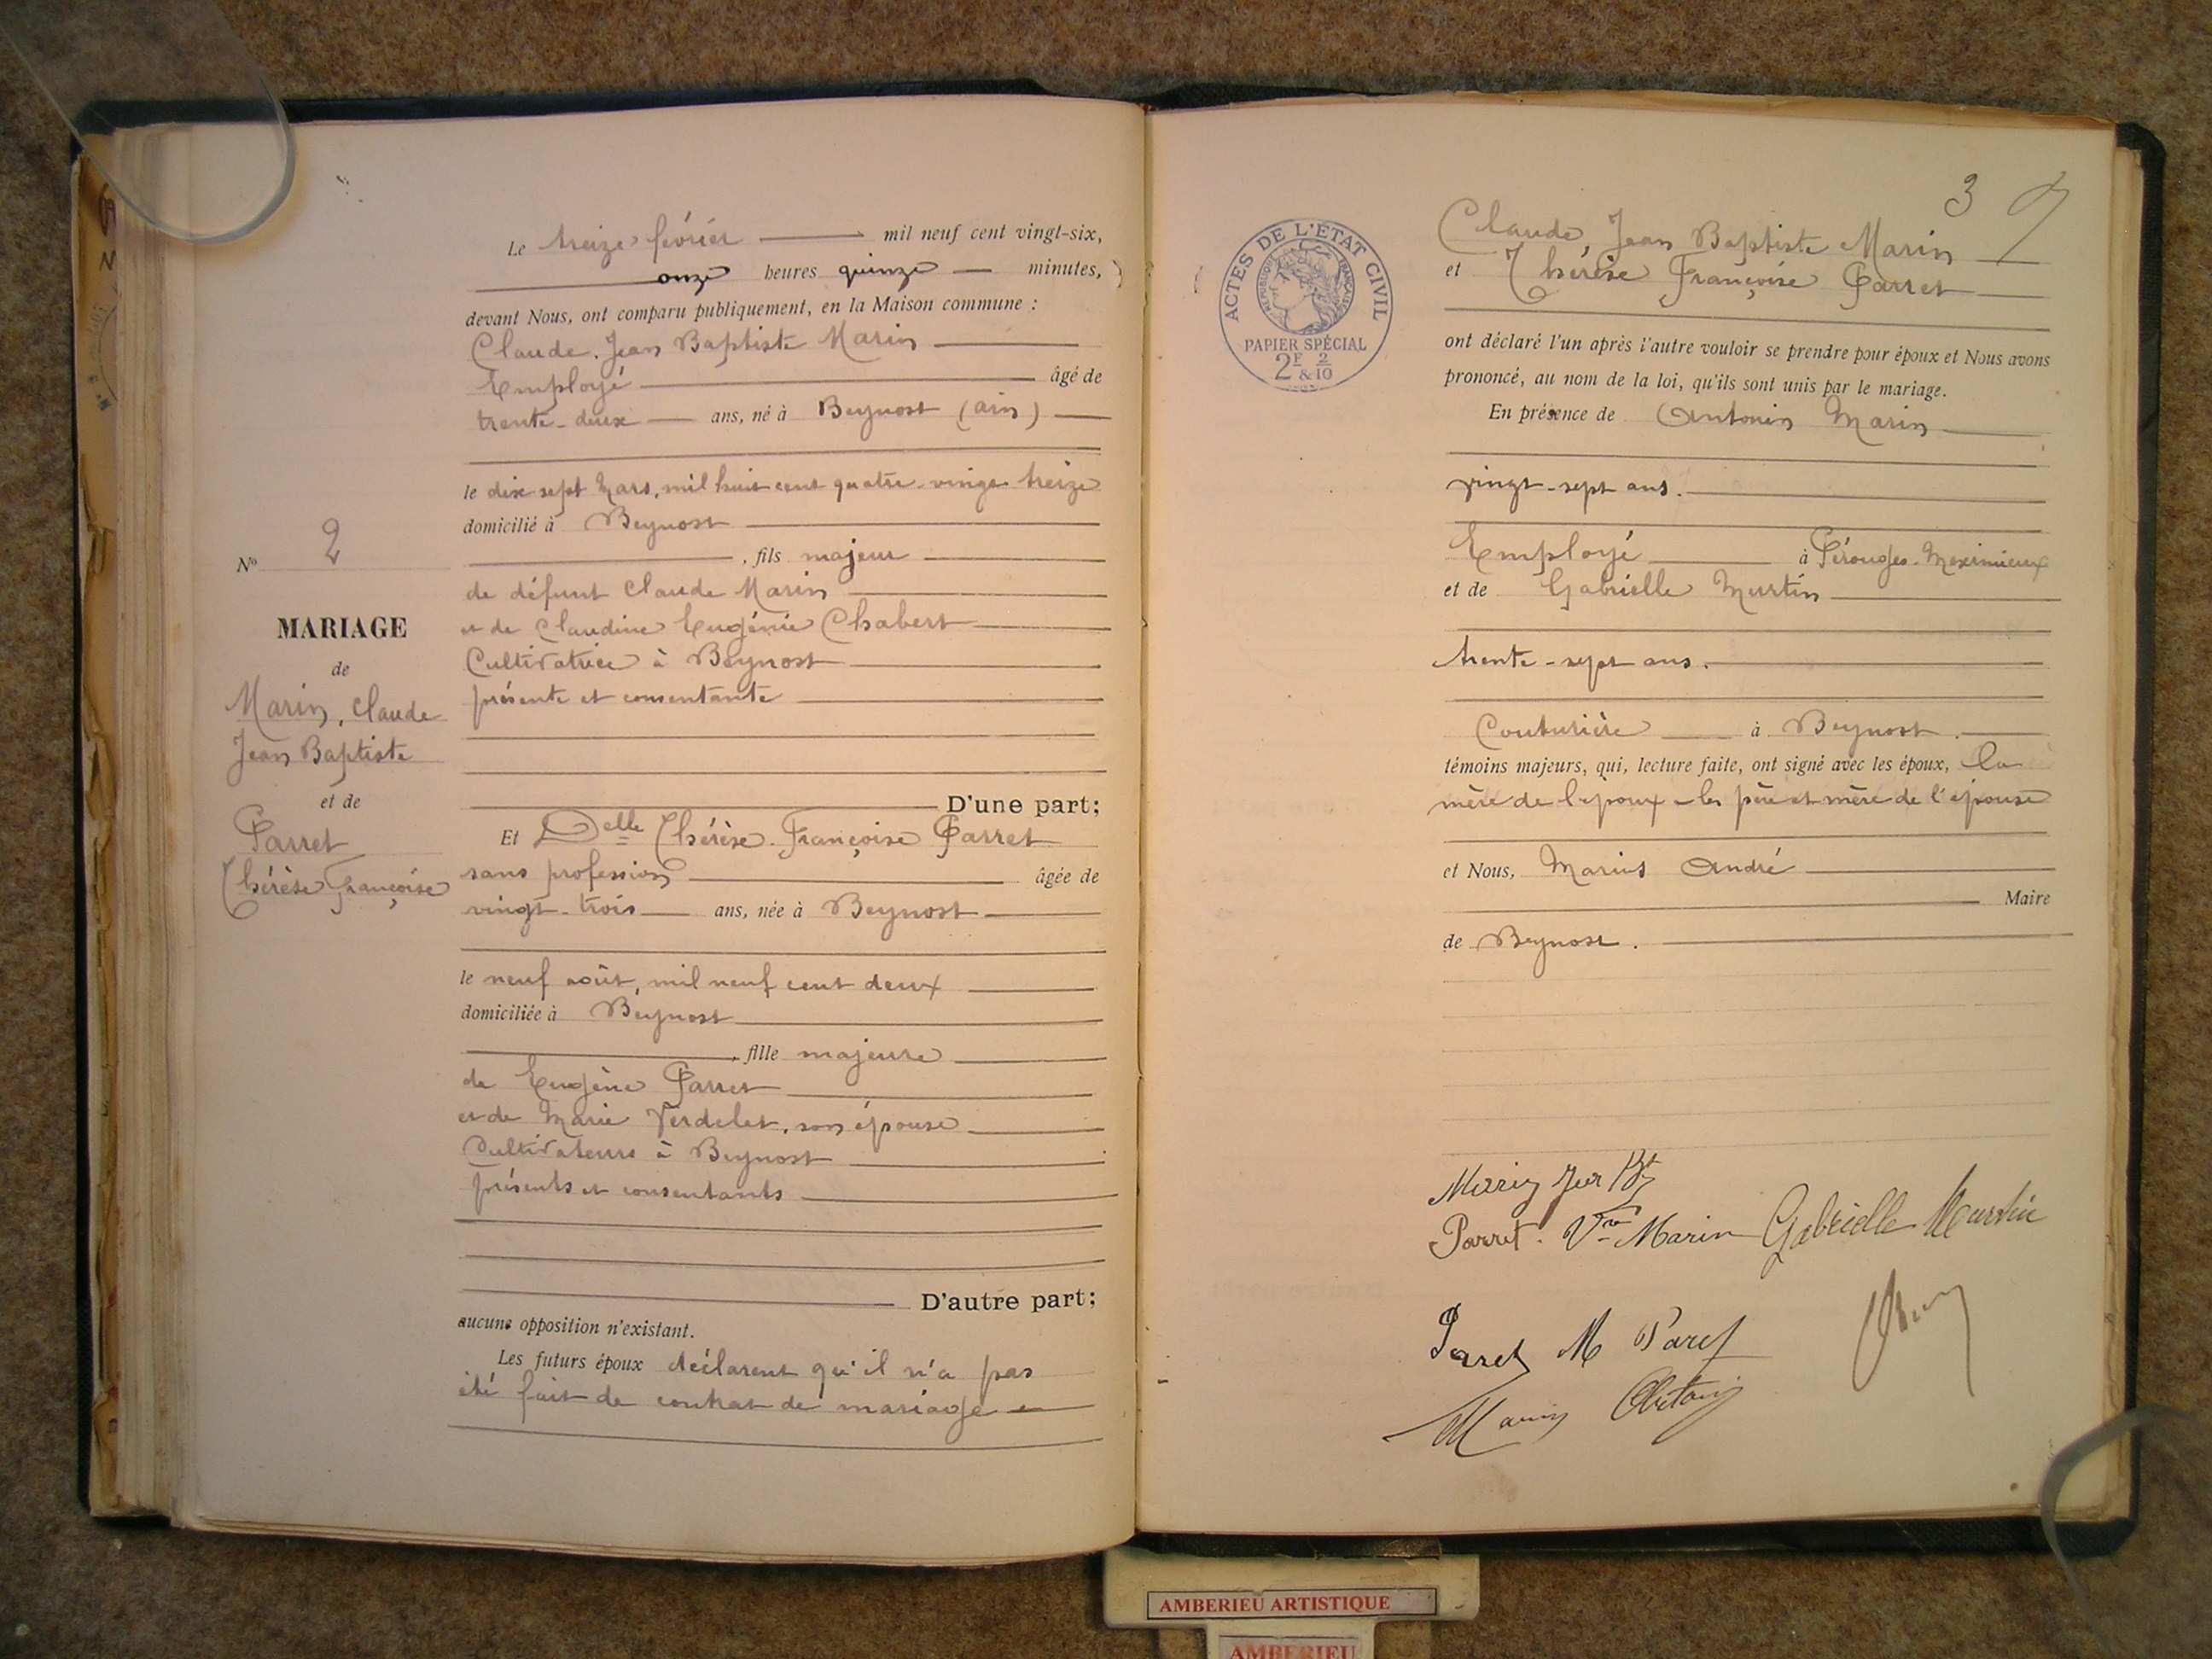 Le treize février mil neuf cent vingt-six,
onze heures quinze minutes,
devant Nous, ont comparu publiquement, en la Maison commune :
Claude, Jean Baptiste Marin
Employé âgé de
trente-deux ans, né à Beynost (ain)
le dix sept Mars, mil huit cent quatre-vingt treize
domicilié à Beynost
, fils majeur
de défunt Claude Marin
et de Claudine Eugénie Chabert
Cultivatrice à Beynost
présente et consentante
D'une part;
Et Delle Thérèse Françoise Parret
sans profession âgée de
vingt-trois ans, née à Beynost
le neuf août, mil neuf cent deux
domiciliée à Beynost
, fille majeure
de Eugène Parret
et de Marie Verdelet, son épouse
Cultivateurs à Beynost
présents et consentants
D'autre part;
aucune opposition n'existant.
Les futurs époux déclarent qu'il n'a pas
été fait de contrat de mariage
No 2
MARIAGE
de
Marin, Claude
Jean Baptiste
et de
Parret
Thérèse Françoise
3
ACTES DE L'ÉTAT CIVIL
RÉPUBLIQUE FRANÇAISE
PAPIER SPÉCIAL
2F & 2/10
Claude, Jean Baptiste Marin
et Thérèse Françoise Parret
ont déclaré l'un après l'autre vouloir se prendre pour époux et Nous avons
prononcé, au nom de la loi, qu'ils sont unis par le mariage.
En présence de Antonin Marin
vingt-sept ans.
Employé à Pérouges-Meximieux
et de Gabrielle Murtin
trente-sept ans.
Couturière à Beynost.
témoins majeurs, qui, lecture faite, ont signé avec les époux, la
mère de l'époux - les père et mère de l'épouse
et Nous, Marius André
Maire
de Beynost.
Marin
Parret. Vve Marin Gabrielle Murtin
Parret M Paret
Marin
AMBERIEU ARTISTIQUE
AMBERIEU